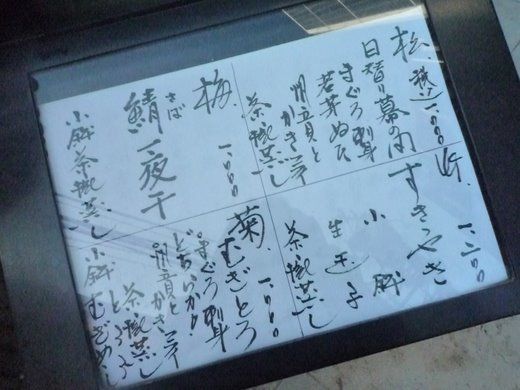 松 税込
日替り幕の内
まぐろ刺身
若芽ぬた
帆立貝と
かき
茶碗蒸し
竹 一二〇〇
すきやき
小鉢
生玉子
茶碗蒸し
梅 一〇〇〇
さば
鯖一夜干
小鉢 茶碗蒸し
菊 一〇〇〇
むぎとろ
まぐろ刺身
どちらか
帆立貝と
かき
茶碗蒸し
とろろ
小鉢 むぎめし